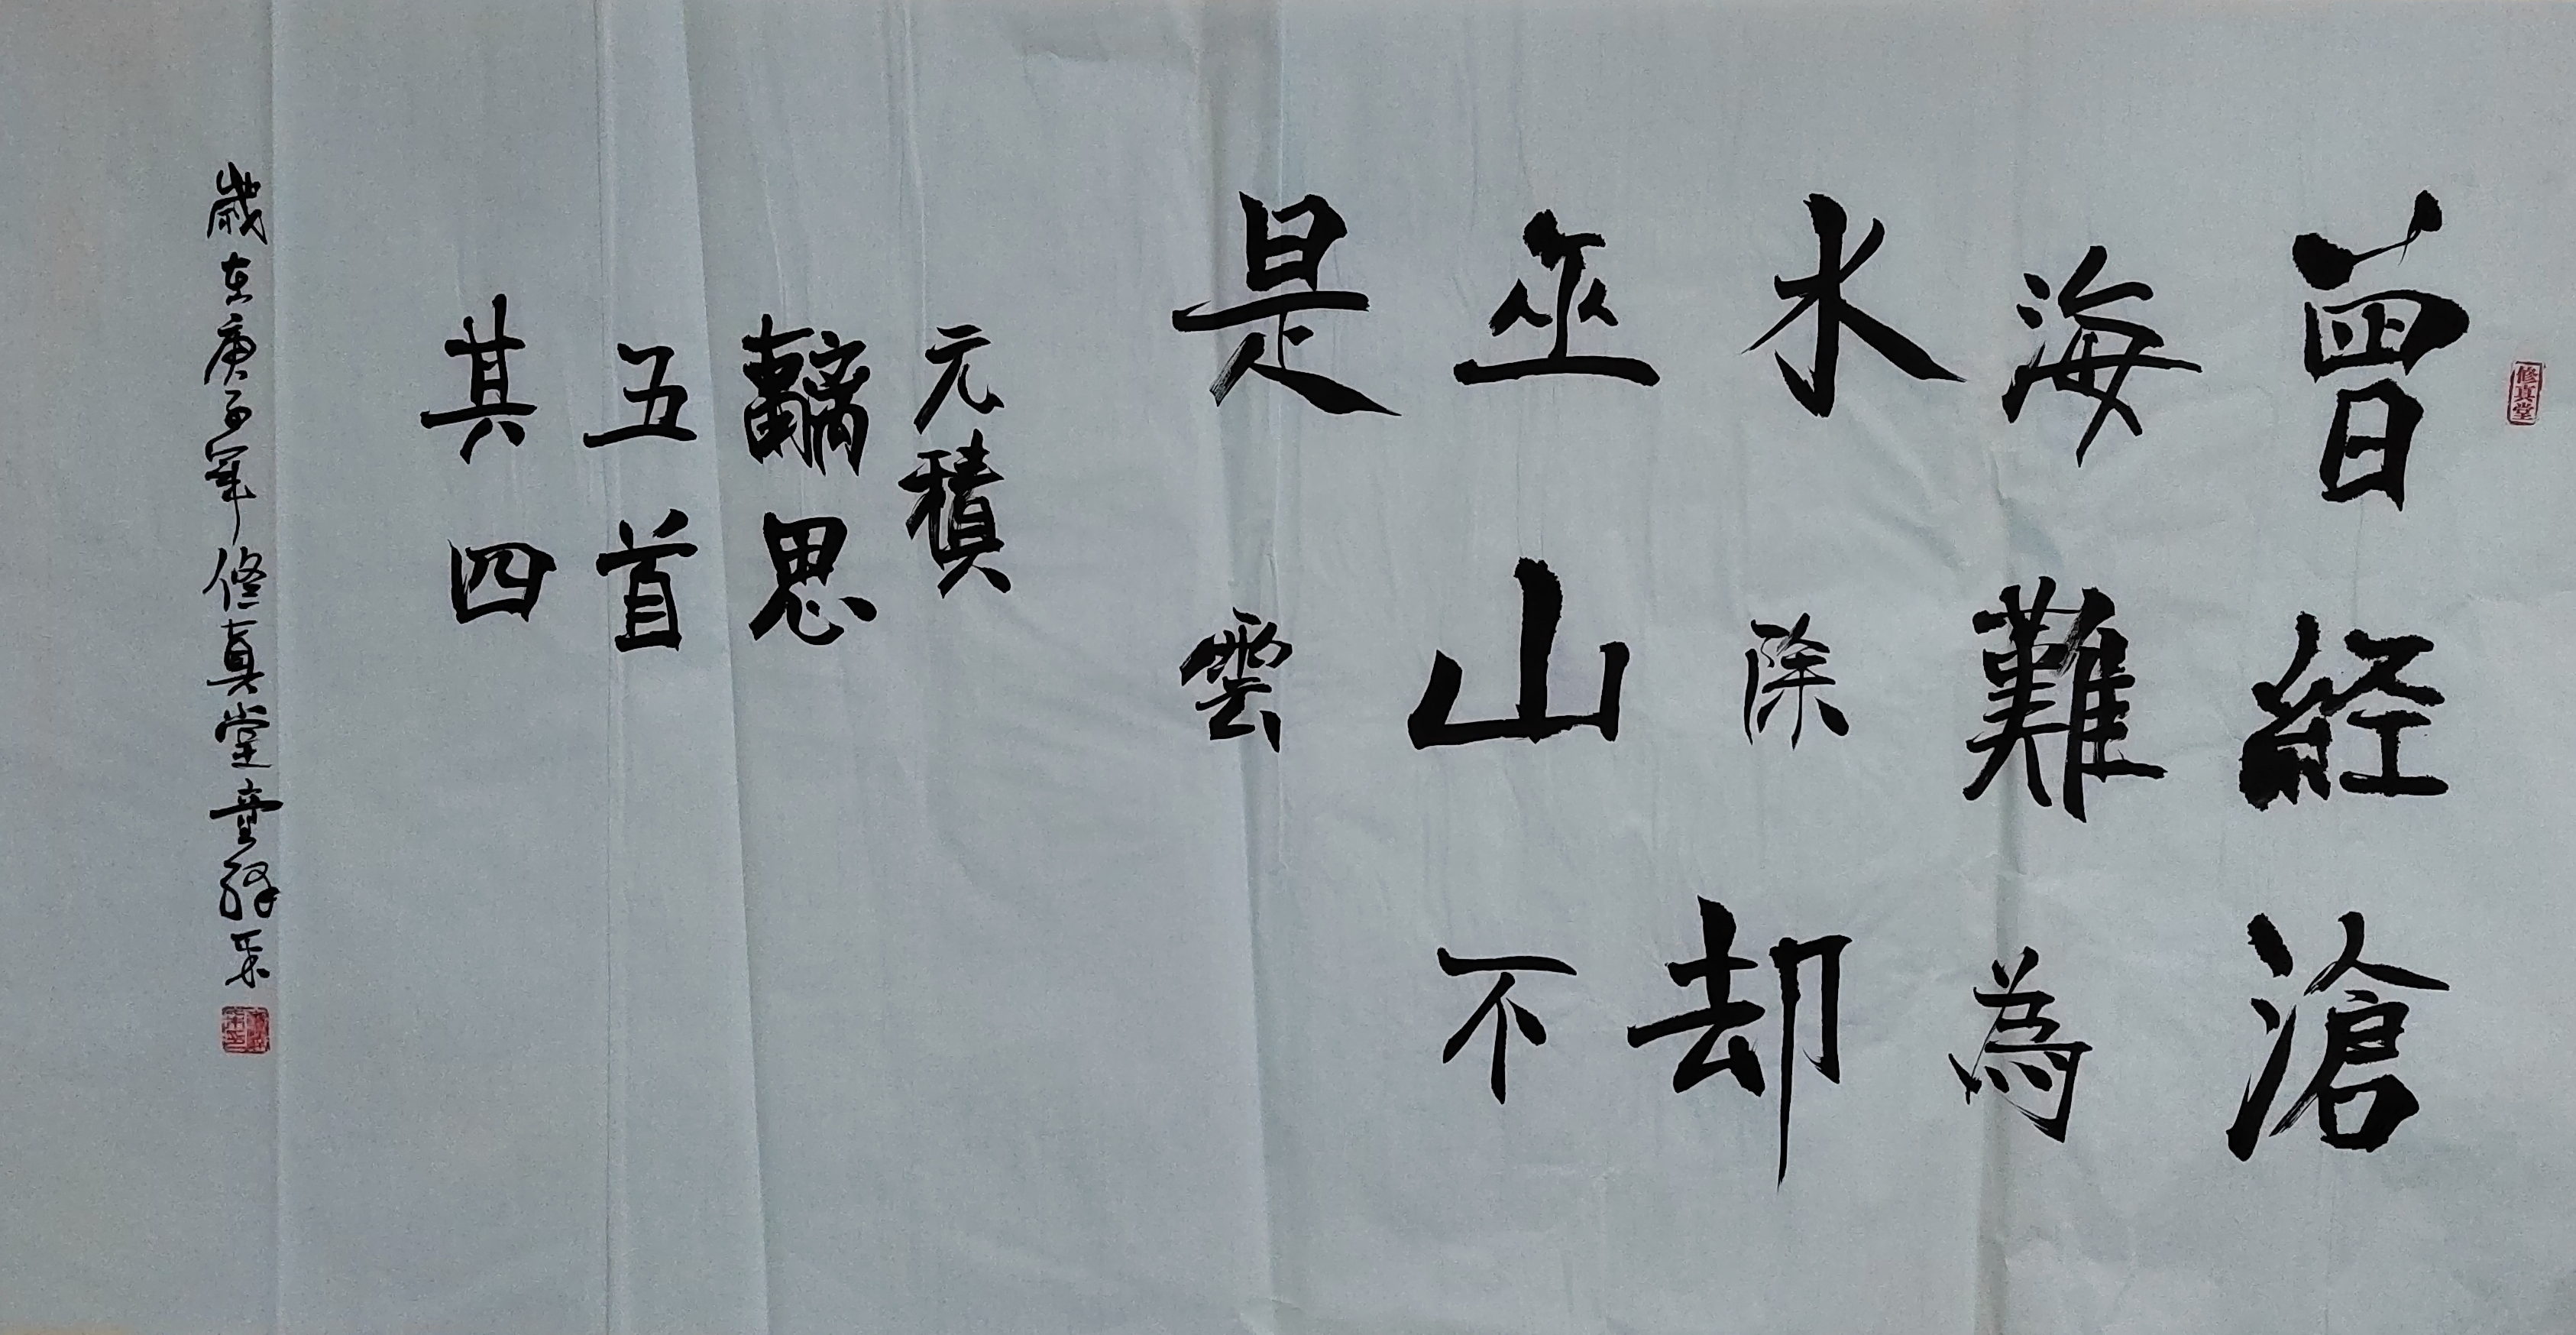 修真堂
曾經滄
海難為
水除却
巫山不
是雲
元積
離思
五首
其四
歲在庚子年修真堂童